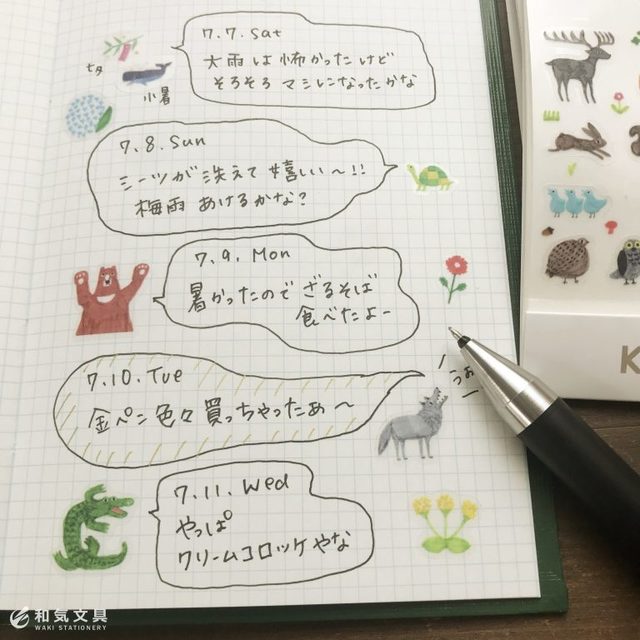 7.7.sat
七夕
大雨は怖かったけど
そろそろ マシになったかな
小暑
7.8.sun
シーツが洗えて嬉しい〜!!
梅雨あけるかな?
7.9.Mon
暑かったので ざるそば
食べたよー
7.10.Tue
うぉー
金ペン色々買っちゃったぁ〜
7.11.Wed
やっぱ
クリームコロッケやな
K
和気文具
WAKI STATIONERY